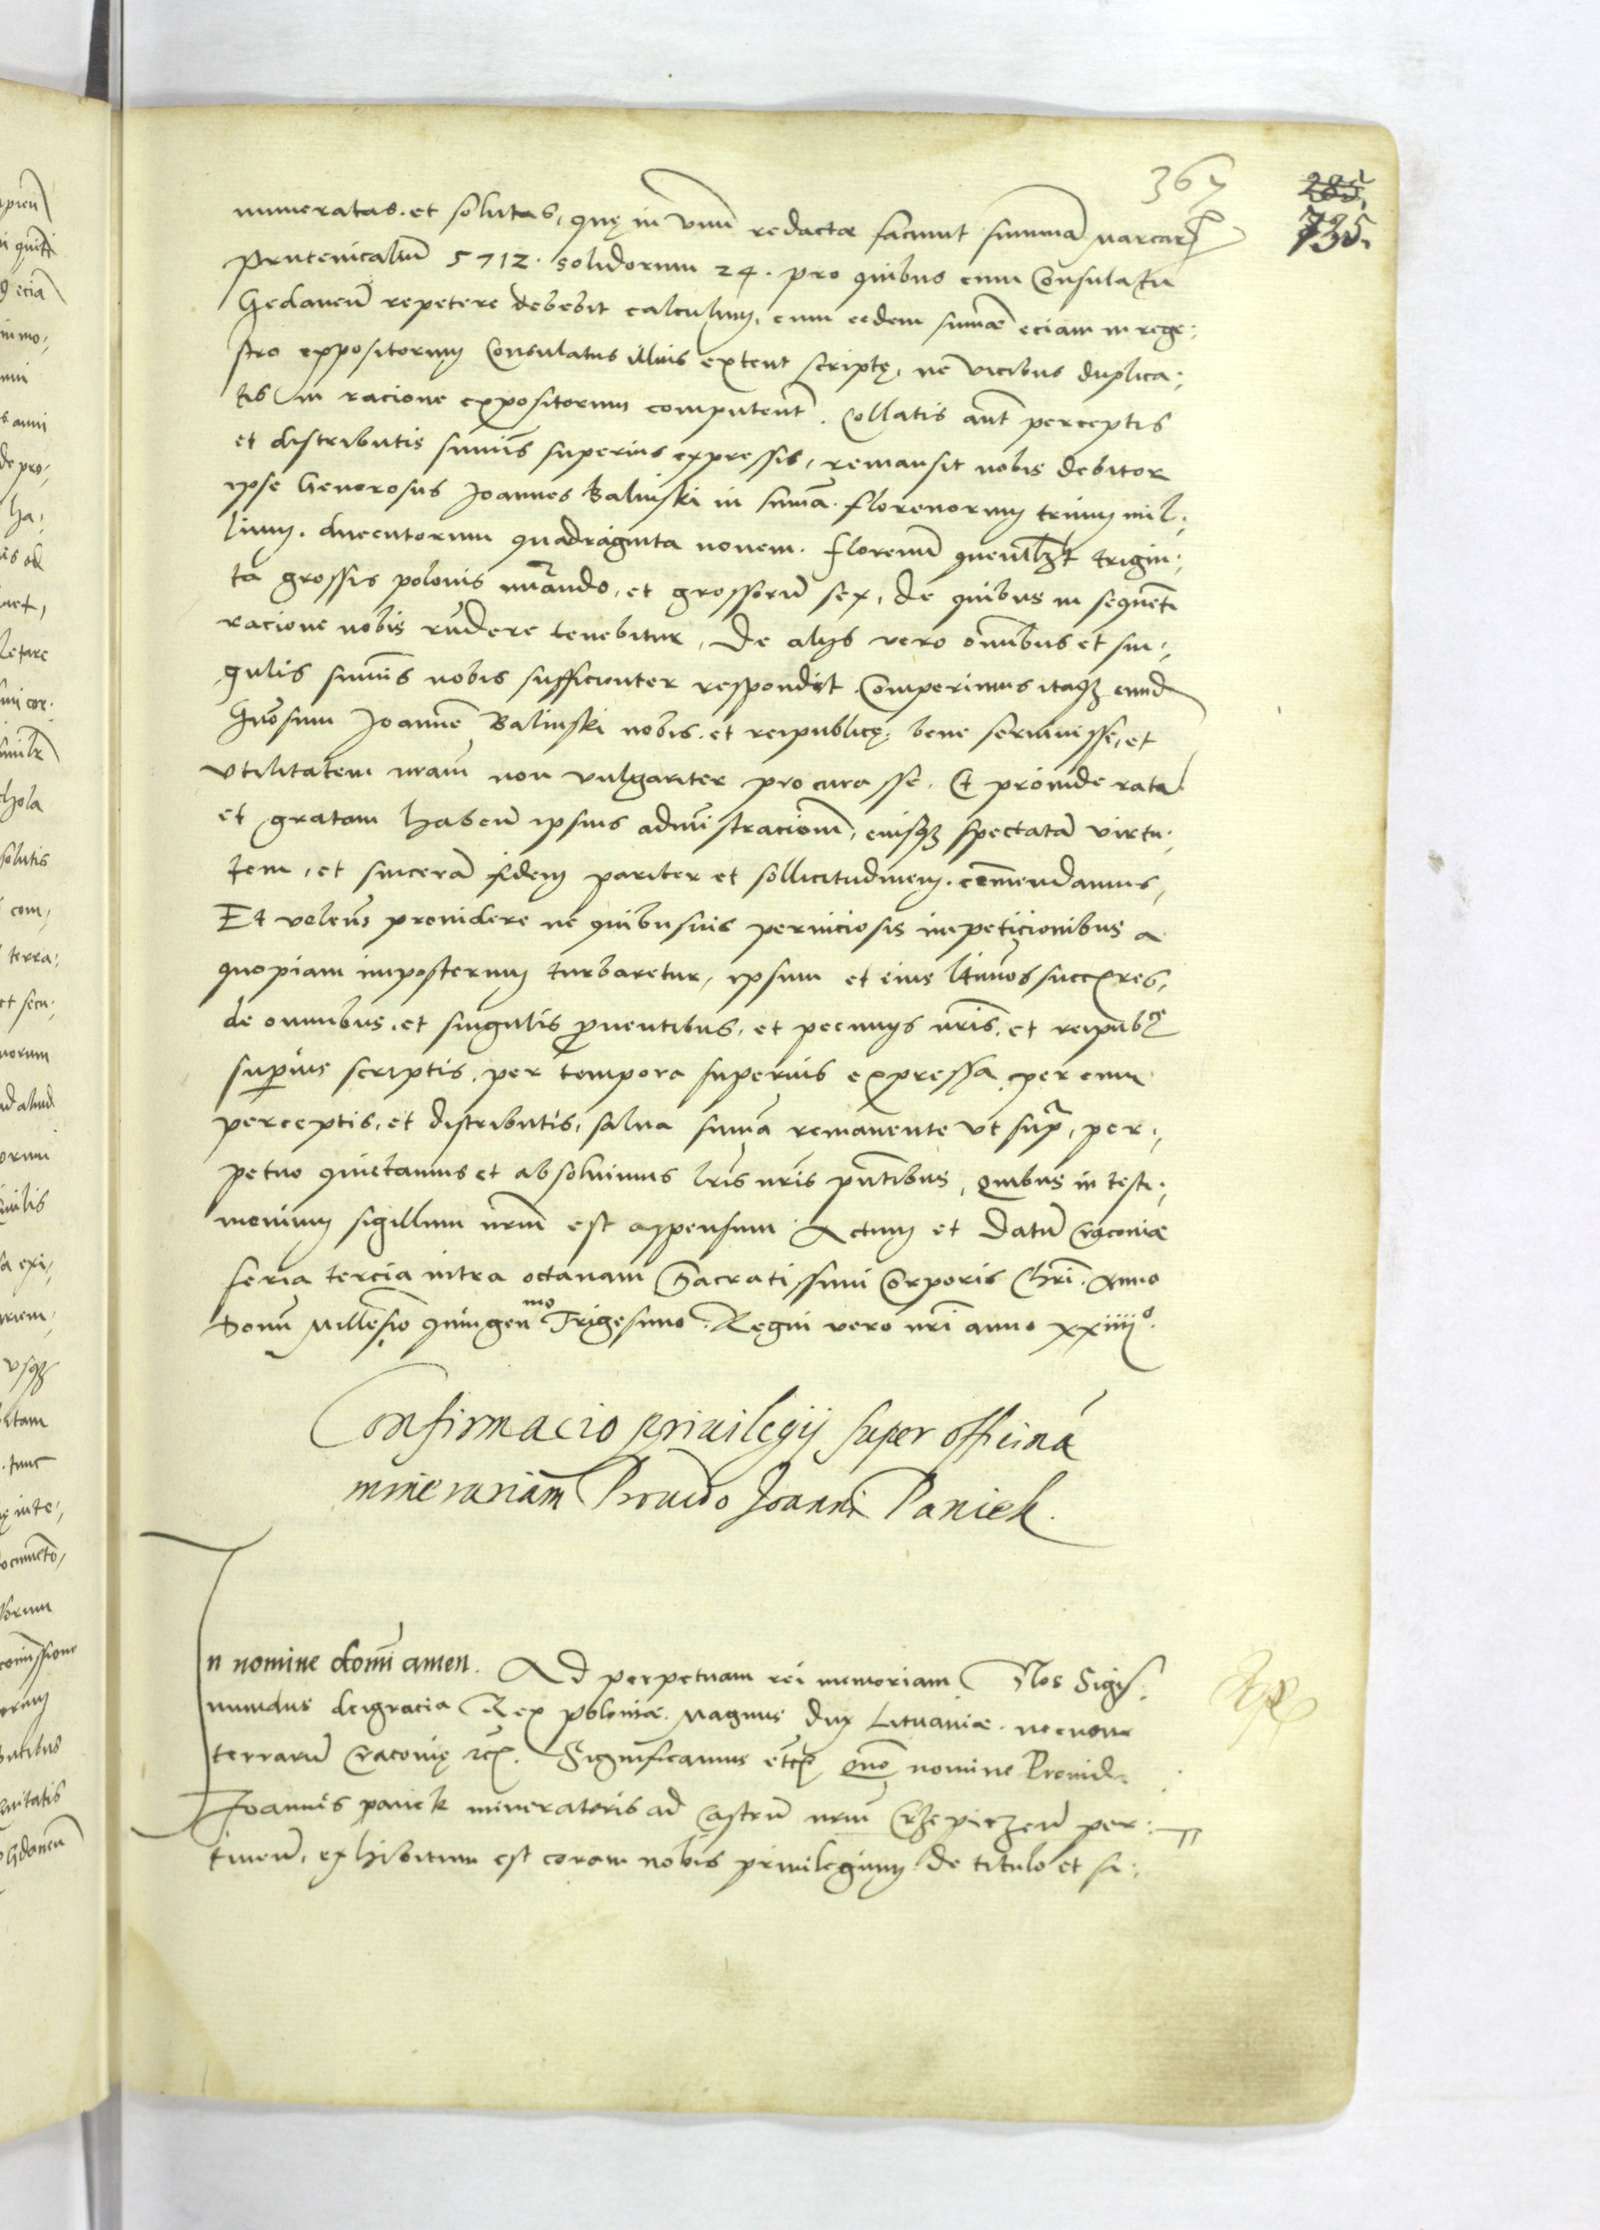 367
285
735.
numeratas. et solutas, quę in vnũ redactæ faciunt summã marcar
Prutenicaliũ 5712. solidorum 24. pro quibus cum Consulatu
Gedaneñ repetere debebit calculum, cum eedem sum̃æ eciam in rege:
stro expositorum Consulatus illius extent scriptę, ne vicibus duplica:
tis in racione expositorum computent̃. Collatis aut̃ perceptis
et distributis sum̃is superius expressis, remansit nobis debitor
ipse Generosus Joannes Balinski in sum̃a. florenorum trium mil:
lium. ducentorum quadraginta novem. florenũ quemlꝫt trigin:
ta grossis polonis nũando, et grossorũ sex, de quibus in sequeñti
racione nobis rũdere tenebitur, De alijs vero om̃ibus et sin:
gulis sum̃is nobis sufficienter respondit. Comperimus itaqꝫ eund
Gñosum Joannẽ Balinski nobis. et reipublicę. bene seruiuisse, et
vtilitatem nram̃ non vulgariter procurasse. Et proinde ratã
et gratam habeñ ipsius administracioñ, eiusqꝫ spectatã virtu:
tem, et sincerã fidem pariter et sollicitudinem. com̃endamus,
Et voleñs providere ne quibusuis perniciosis inpeticionibus a
quopiam imposterum turbaretur, ipsum et eius ltiĩos succres,
de omnibus. et singulis ꝓuentibus, et pecunijs nr̃is. et reipub
suꝑius scriptis, per tempora superius expressa per eum
perceptis, et distributis, salua sum̃a remanente vt supˀ, per:
petuo quietamus et absoluimus lr̃is nr̃is pñtibus, quibus in testi:
monium sigillum nrm̃ est appensum. Actum et Datũ Cracoviæ
feria tercia intra octauam Sacratissimi Corporis Chrĩ. Anno
Domĩ Millesĩo Quingenmo Trigesimo. Regni vero nrĩ anno xxiiiiº.
Confirmacio priuilegij super officinã
minerariam̃ Prouido Joanni Paniek.
In nomine domĩ amen. Ad perpetuam rei memoriam Nos Sigis:
mundus dei gracia Rex Poloniæ. Magnus Dux Lituaniæ. necnon
terrarũ Cracovię etc. Significamus etc. Quõ nomine Prouidi
Joannis paniek mineratoris ad Castrũ nrm̃ Krzepiczeñ per:
tineñ, exhibitum est coram nobis priuilegium de titulo et si: